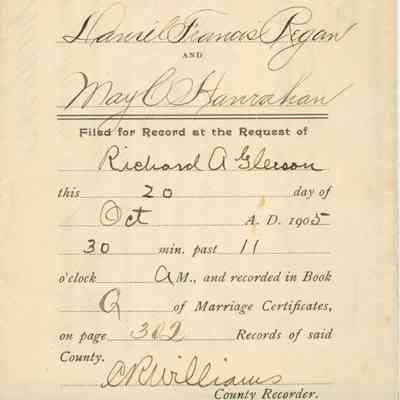 Daniel Francis Regan
AND
May C Hanrahan
Filed for Record at the Request of
Richard A Gleeson
this 20 day of
Oct A. D. 1905
30 min. past 11
o'clock A M., and recorded in Book
Q of Marriage Certificates,
on page 309 Records of said
County.
CRWilliams
County Recorder.